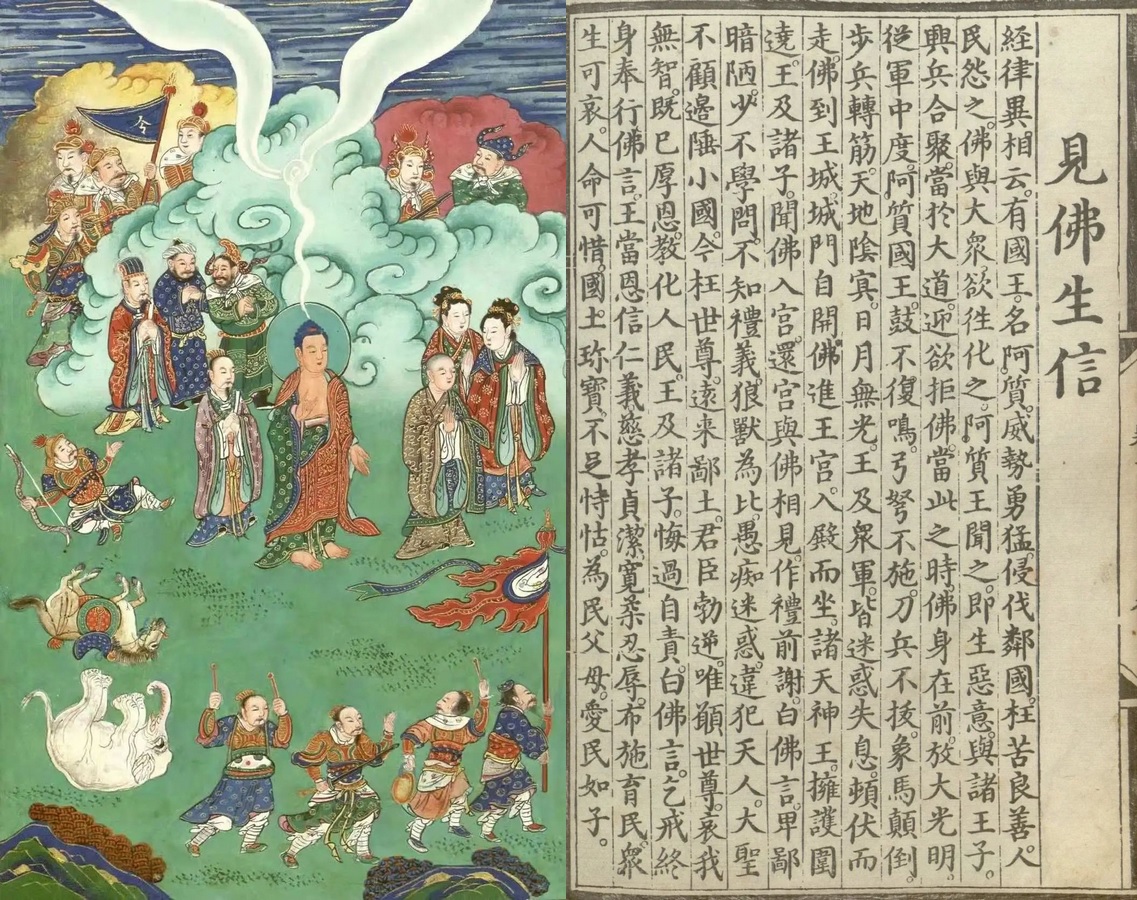 見佛生信
経律異相云。有國王。名阿質。威勢勇猛。侵伐鄰國。枉苦良善。人
民怨之。佛與大衆欲往化之。阿質王聞之。即生惡意。與諸王子。
興兵合聚。當於大道。迎欲拒佛。當此之時。佛身在前。放大光明。
從軍中度。阿質國王。鼓不復鳴。弓弩不施。刀兵不拔。象馬顛倒。
步兵轉筋。天地陰㝠。日月無光。王及衆軍。皆迷惑失息。頓伏而
走。佛到王城。城門自開。佛進王宮。入殿而坐。諸天神王。擁護圍
遶。王及諸子。聞佛入宮。還宮與佛相見。作禮前謝。白佛言。甲鄙
暗陋。少不學問。不知禮義。狼獸為比。愚痴迷惑。違犯天人。大聖
不顧邊陲小國。今枉世尊。遠来鄙土。君臣勃逆。唯願世尊。哀我
無智。既已厚恩。教化人民。王及諸子。悔過自責。白佛言。乞戒終
身奉行佛言。王當恩信仁義。慈孝貞潔。寬柔忍辱。布施育民。衆
生可哀。人命可惜。國土珎寶。不足恃怙。為民父母。愛民如子。
令